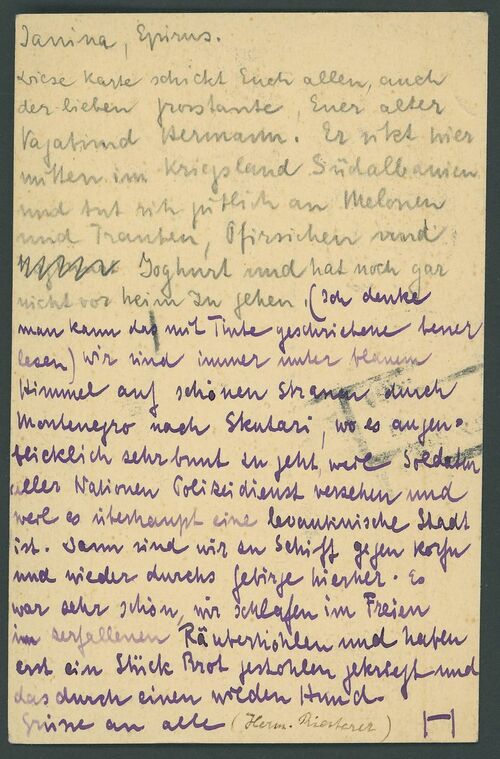 Janina, Epirus.
Diese Karte schickt Euch allen, auch
der lieben Grosstante, Euer alter
Vagabund Hermann. Er sitzt hier
mitten im Kriegsland Südalbanien
und tut sich gütlich an Melonen
und Trauben, Pfirsichen und
Joghurt und hat noch gar
nicht vor heim zu gehen. (Ich denke
man kann das mit Tinte geschriebene besser
lesen) Wir sind immer unter blauem
Himmel auf schönen Strassen durch
Montenegro nach Skutari, wo es augen-
blicklich sehr bunt zu geht, weil Soldaten
aller Nationen Polizeidienst versehen und
weil es überhaupt eine levantinische Stadt
ist. Dann sind wir zu Schiff gegen Korfu
und wieder durchs Gebirge hierher. Es
war sehr schön, wir schlafen im Freien
in zerfallenen Räuberhöhlen und haben
erst ein Stück Brot gestohlen gekriegt und
das durch einen wilden Hund.
Grüsse an alle (Herm. Riesterer) H